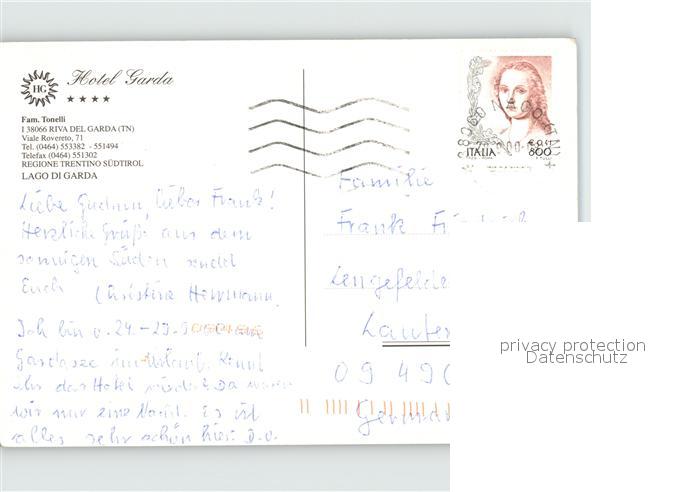 HG
Hotel Garda
Fam. Tonelli
I 38066 RIVA DEL GARDA (TN)
Viale Rovereto, 71
Tel. (0464) 553382 - 551494
Telefax (0464) 551302
REGIONE TRENTINO SÜDTIROL
LAGO DI GARDA
ITALIA 800
Liebe Gudrun, lieber Frank!
Herzliche Grüße aus dem
sonnigen Süden sendet
Euch Christine Herrmann
Ich bin v. 24. - 29.9. am
Gardasee im Urlaub. Kennt
ihr das Hotel Da waren
wir nur eine Nacht. Es ist
alles sehr schön hier.
Familie
Frank
Lengefelde
Lauter
09 496
German
privacy protection
Datenschutz